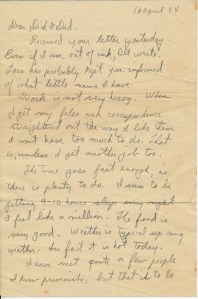 16 April 54
Dear Dad & Dad.
Received your letter yesterday.
Even if I am out of ink, I'll write.
has probably kept you informed
of what little news I have.
Work is not very heavy. When
I get my files and correspondence
straightened out the way I like them
I won't have too much to do. That
is, unless I get another job too.
Time goes fast enough, as
there is plenty to do. I seem to be
getting 9-10 hours sleep every night
I feel like a million. The food is
very good. Weather is typical
In fact it is hot today.
I have met quite a few people
I knew previously, but that is to be